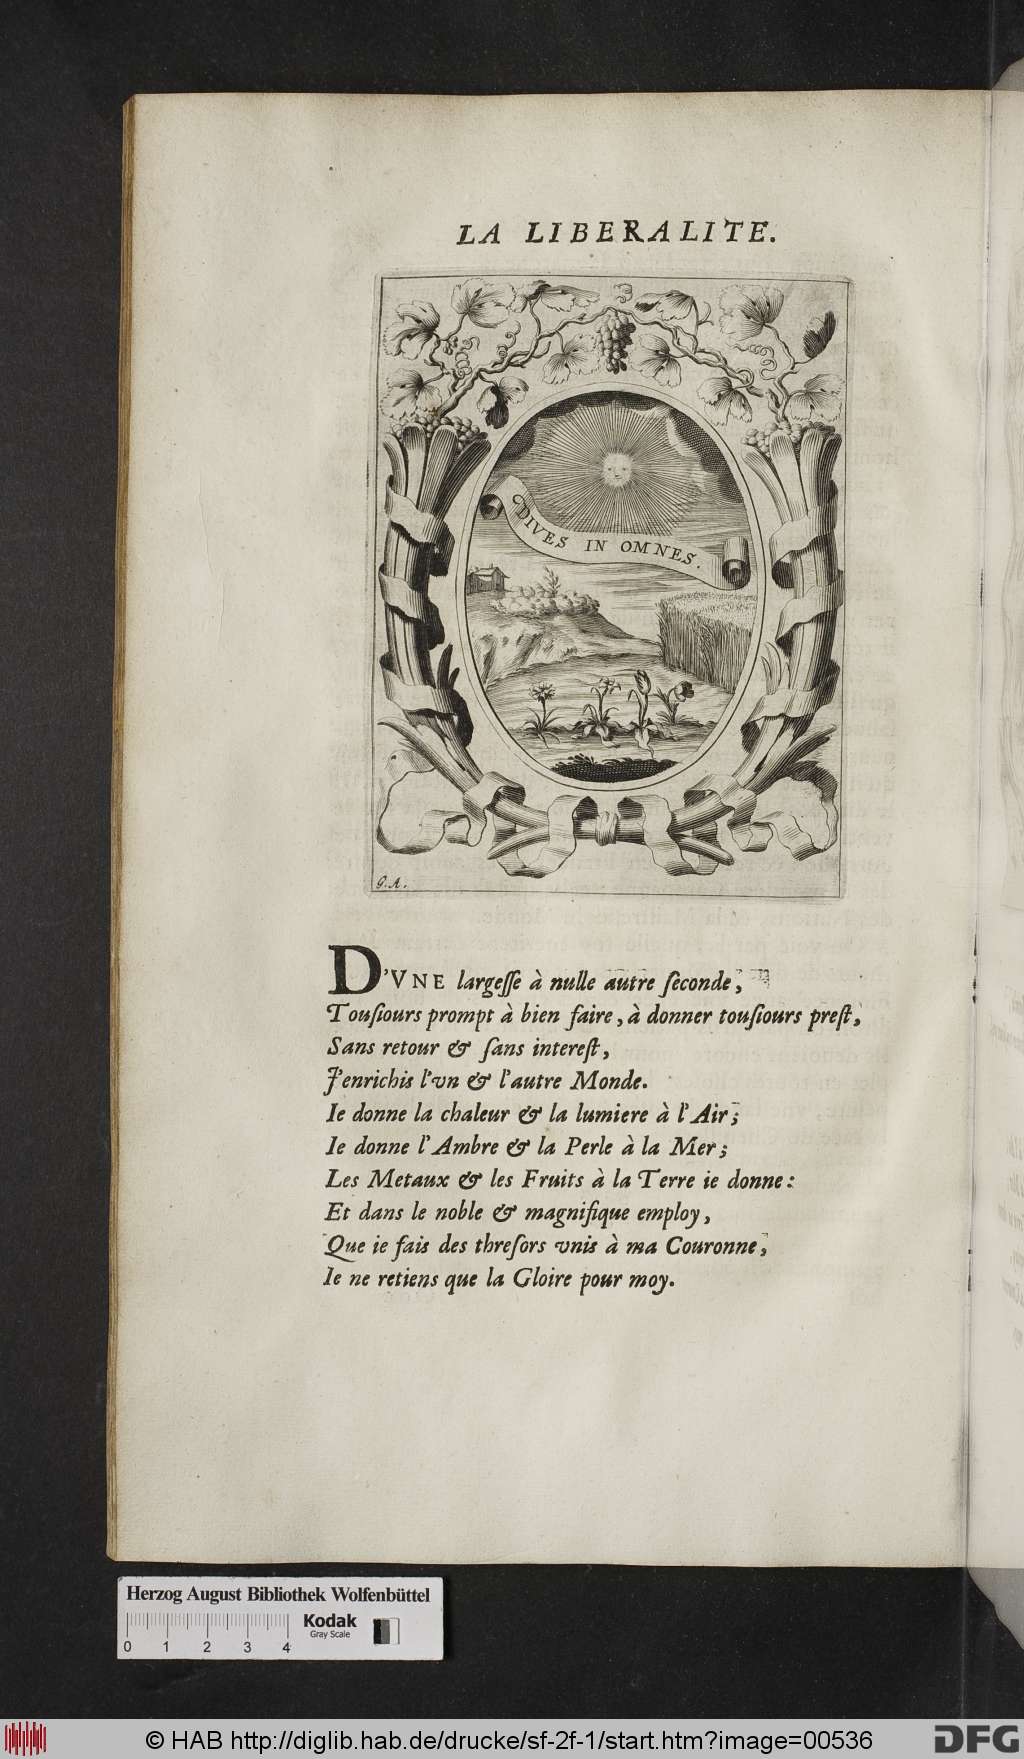 LA LIBERALITE.
DIVES IN OMNES.
G.A.
D'VNE largeſſe à nulle autre ſeconde,
Touſiours prompt à bien faire, à donner touſiours preſt,
Sans retour & ſans intereſt,
J'enrichis l'vn & l'autre Monde.
Ie donne la chaleur & la lumiere à l'Air;
Ie donne l'Ambre & la Perle à la Mer;
Les Metaux & les Fruits à la Terre ie donne:
Et dans le noble & magnifique employ,
Que ie fais des threſors vnis à ma Couronne,
Ie ne retiens que la Gloire pour moy.
Herzog August Bibliothek Wolfenbüttel
Kodak
Gray Scale
0 1 2 3 4
© HAB http://diglib.hab.de/drucke/sf-2f-1/start.htm?image=00536
DFG